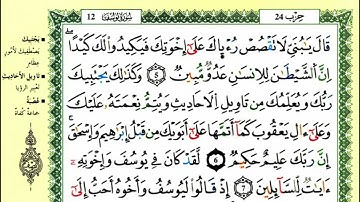 حزب 24
سورة يوسف 12
قَالَ يَٰبُنَيِّ لَا تَقْصُصْ رُءْيَاكَ عَلَىٰٓ إِخْوَتِكَ فَيَكِيدُواْ لَكَ كَيْدًا
إِنَّ ٱلشَّيْطَٰنَ لِلِانسَٰنِ عَدُوٌّ مُّبِينٌ 5 وَكَذَٰلِكَ يَجْتَبِيكَ
رَبُّكَ وَيُعَلِّمُكَ مِن تَاوِيلِ ٱلَاحَادِيثِ وَيُتِمُّ نِعْمَتَهُۥ عَلَيْكَ
وَعَلَىٰٓ ءَالِ يَعْقُوبَ كَمَآ أَتَمَّهَا عَلَىٰٓ أَبَوَيْكَ مِن قَبْلُ إِبْرَٰهِيمَ وَإِسْحَٰقَ
إِنَّ رَبَّكَ عَلِيمٌ حَكِيمٌ 6 لَّقَدْ كَانَ فِي يُوسُفَ وَإِخْوَتِهِۦٓ
ءَايَٰتٌ لِّلسَّآئِلِينَ 7 إِذْ قَالُواْ لَيُوسُفُ وَأَخُوهُ أَحَبُّ إِلَىٰٓ
يَجْتَبِيكَ
يصطفيك لأمور
عظام
تاويل الاحاديث
تعبير الرؤيا
عصبة
جماعة كفاة